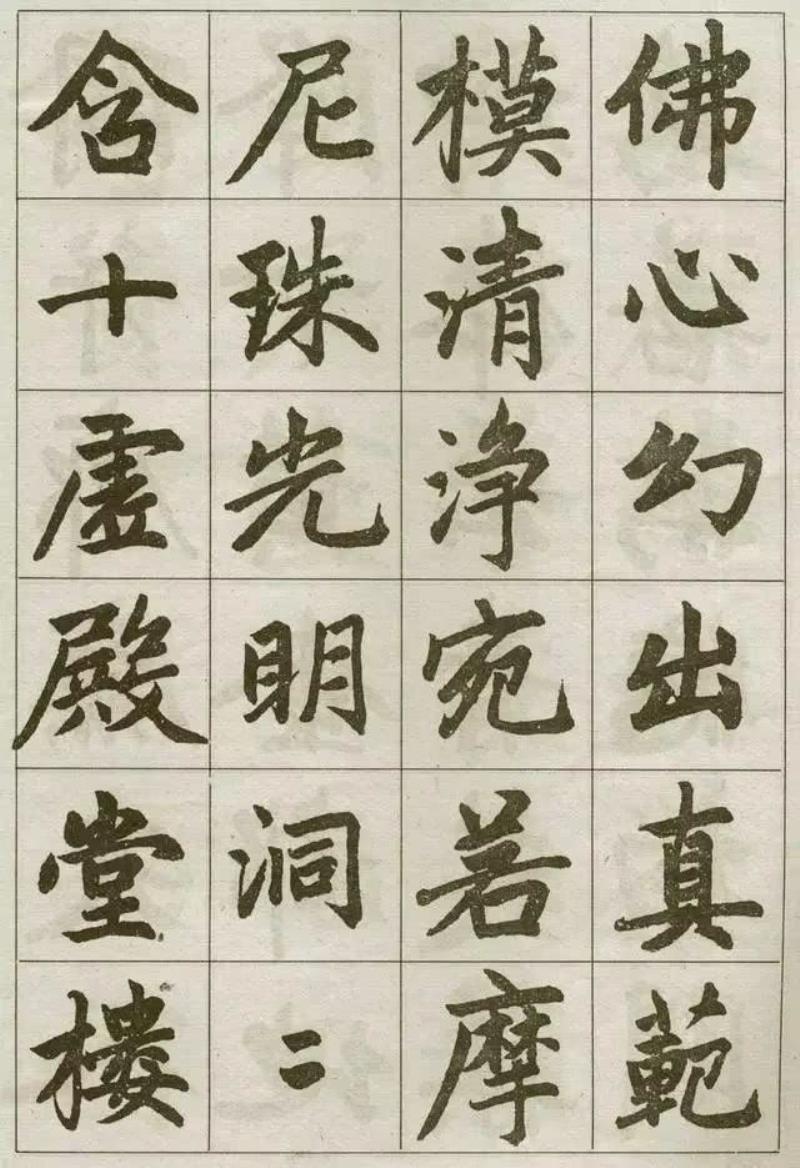 佛心幻出真範
模清浄宛若摩
尼珠光明洞二
含十虛殿堂樓